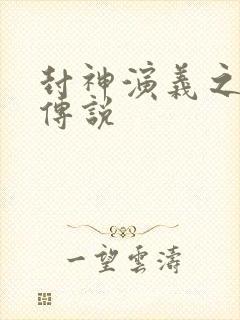 封神演義之
傳說
一望雲濤